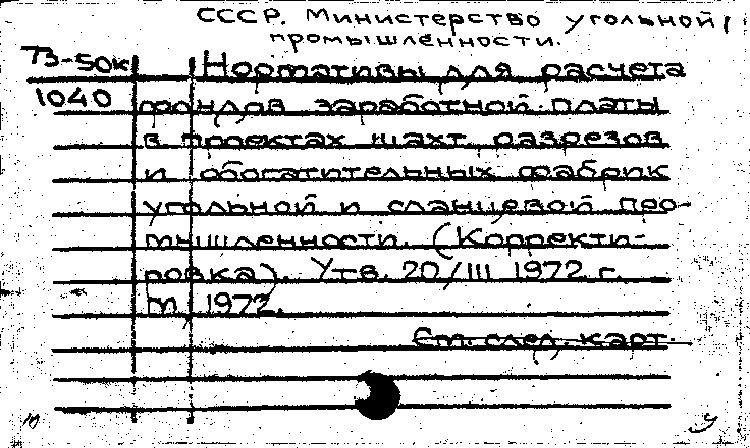 СССР. Министерство угольной
промышленности.
73-50к Нормативы для расчета
1040 фондов заработной платы
в проектах шахт, разрезов
и обогатительных фабрик
угольной и сланцевой про-
мышленности. (Корректи-
ровка). Утв. 20/III 1972 г.
М, 1972.
См. след. карт.